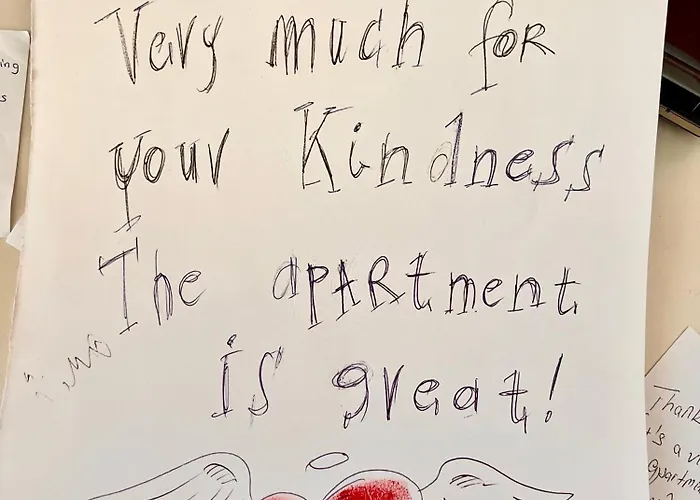 Very much for
your Kindness
The apARtment
is great!
ing
s
Thank
's a vi